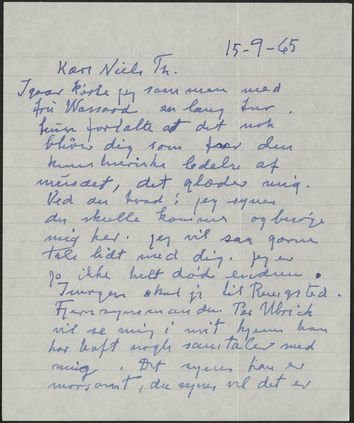 15-9-65
Kære Niels Th.
Igaar kørte jeg sammen med
Fru Wassard en lang tur.
hun fortalte at det nok
bliver dig som faar den
kunstneriske ledelse af
museet, det glæder mig.
Ved du hvad: jeg synes
du skulle komme og besøge
mig her. jeg vil saa gerne
tale lidt med dig. jeg er
jo ikke helt død endnu.
Imorgen skal jeg til Ringsted.
Fjernsynsmanden Per Ulrich
vil se mig i mit hjem han
har haft nogle samtaler med
mig. Det synes han er
morsomt, du synes vel det er